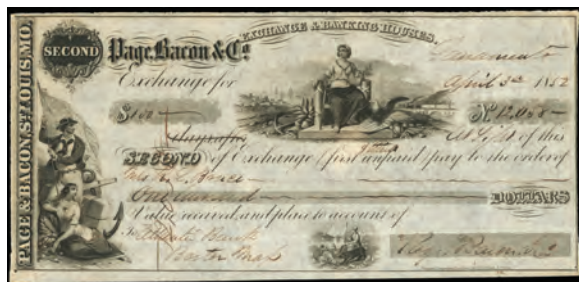 PAGE & BACON, ST. LOUIS, MO.
SECOND
Page, Bacon & Co.
EXCHANGE & BANKING HOUSES.
Sacramento
Exchange for
April 3rd 1852
$100
No. 12,058
At Sight of this
SECOND of Exchange (first unpaid) pay to the order of
One hundred DOLLARS
Value received, and place to account of
To Atlantic Bank
Boston Mass
Page, Bacon & Co